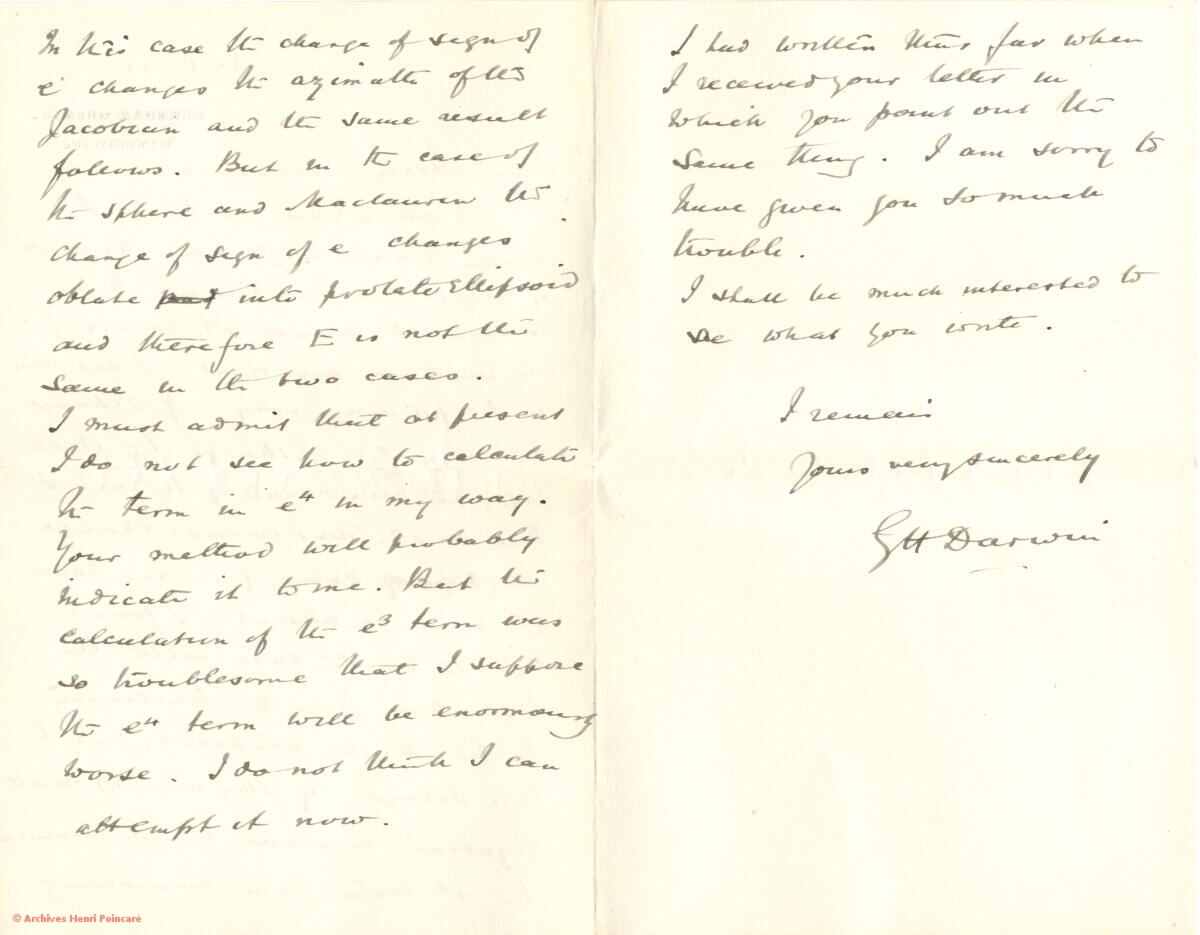 In this case the change of sign of
e changes the azimuth of the
Jacobian and the same result
follows. But in the case of
the sphere and Maclaurin the
change of sign of e changes
oblate into prolate Ellipsoid
and therefore E is not the
same in the two cases.
I must admit that at present
I do not see how to calculate
the term in e⁴ in my way.
Your method will probably
indicate it to me. But the
calculation of the e³ term was
so troublesome that I suppose
the e⁴ term will be enormously
worse. I do not think I can
attempt it now.
I had written thus far when
I received your letter in
which you point out the
same thing. I am sorry to
have given you so much
trouble.
I shall be much interested to
see what you write.
I remain
Yours very sincerely
G H Darwin
© Archives Henri Poincaré